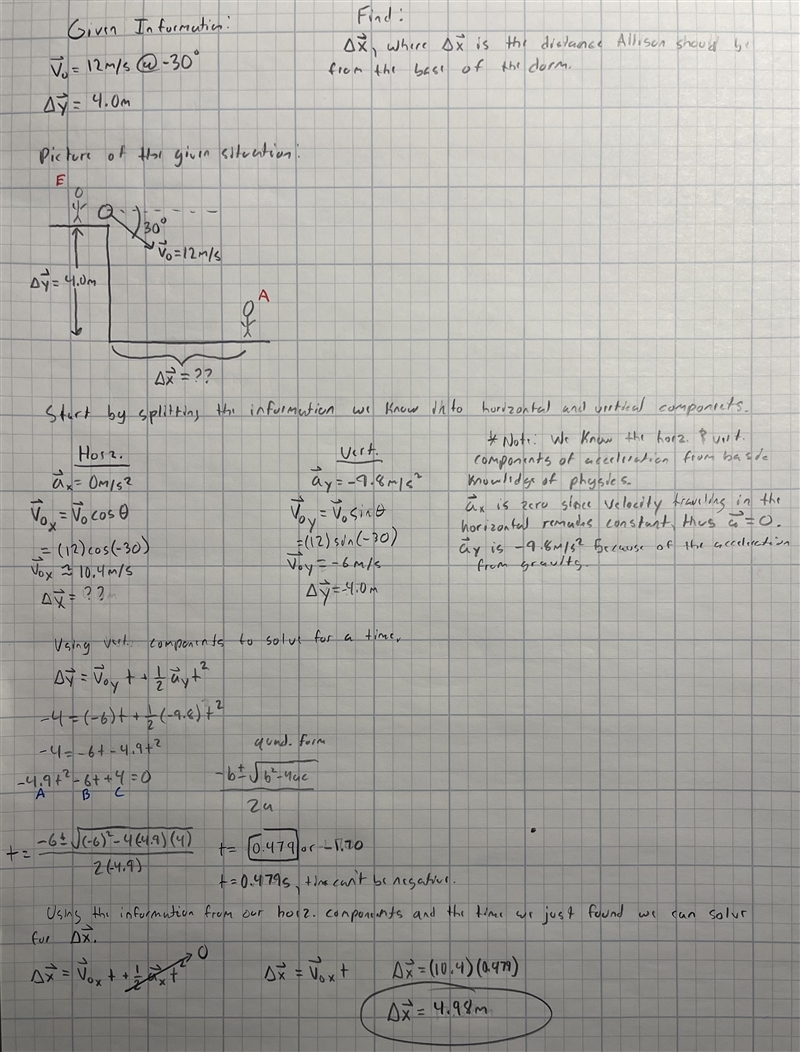 Given Information:
V⃗₀ = 12m/s @ -30°
Δy⃗ = 4.0m
Find:
Δx⃗, where Δx⃗ is the distance Allison should be
from the base of the dorm.
Picture of the given situation:
E
30°
V⃗₀ = 12m/s
Δy⃗ = 4.0m
A
Δx⃗ = ??
Start by splitting the information we know into horizontal and vertical components.
Horz.
a⃗x = 0m/s²
V⃗₀x = V⃗₀ cosθ
= (12)cos(-30)
V⃗₀x ≈ 10.4m/s
Δx⃗ = ??
Vert.
a⃗y = -9.8m/s²
V⃗₀y = V⃗₀ sinθ
= (12)sin(-30)
V⃗₀y = -6m/s
Δy⃗ = -4.0m
* Note: We know the horz. & vert.
components of acceleration from basic
knowledge of physics.
a⃗x is zero since velocity traveling in the
horizontal remains constant, thus a⃗ = 0.
a⃗y is -9.8m/s² because of the acceleration
from gravity.
Using vert. components to solve for a time.
Δy⃗ = V⃗₀y t + ½ a⃗y t²
-4 = (-6)t + ½(-9.8)t²
-4 = -6t - 4.9t²
-4.9t² - 6t + 4 = 0
A B C
quad. form
-b ± √(b²-4ac) / 2a
t = -6 ± √((-6)² - 4(-4.9)(4)) / 2(-4.9)
t = 0.479 or -1.70
t = 0.479s, time can't be negative.
Using the information from our horz. components and the time we just found we can solve
for Δx⃗.
Δx⃗ = V⃗₀x t + ½ a⃗x t² 0
Δx⃗ = V⃗₀x t
Δx⃗ = (10.4)(0.479)
Δx⃗ = 4.98m